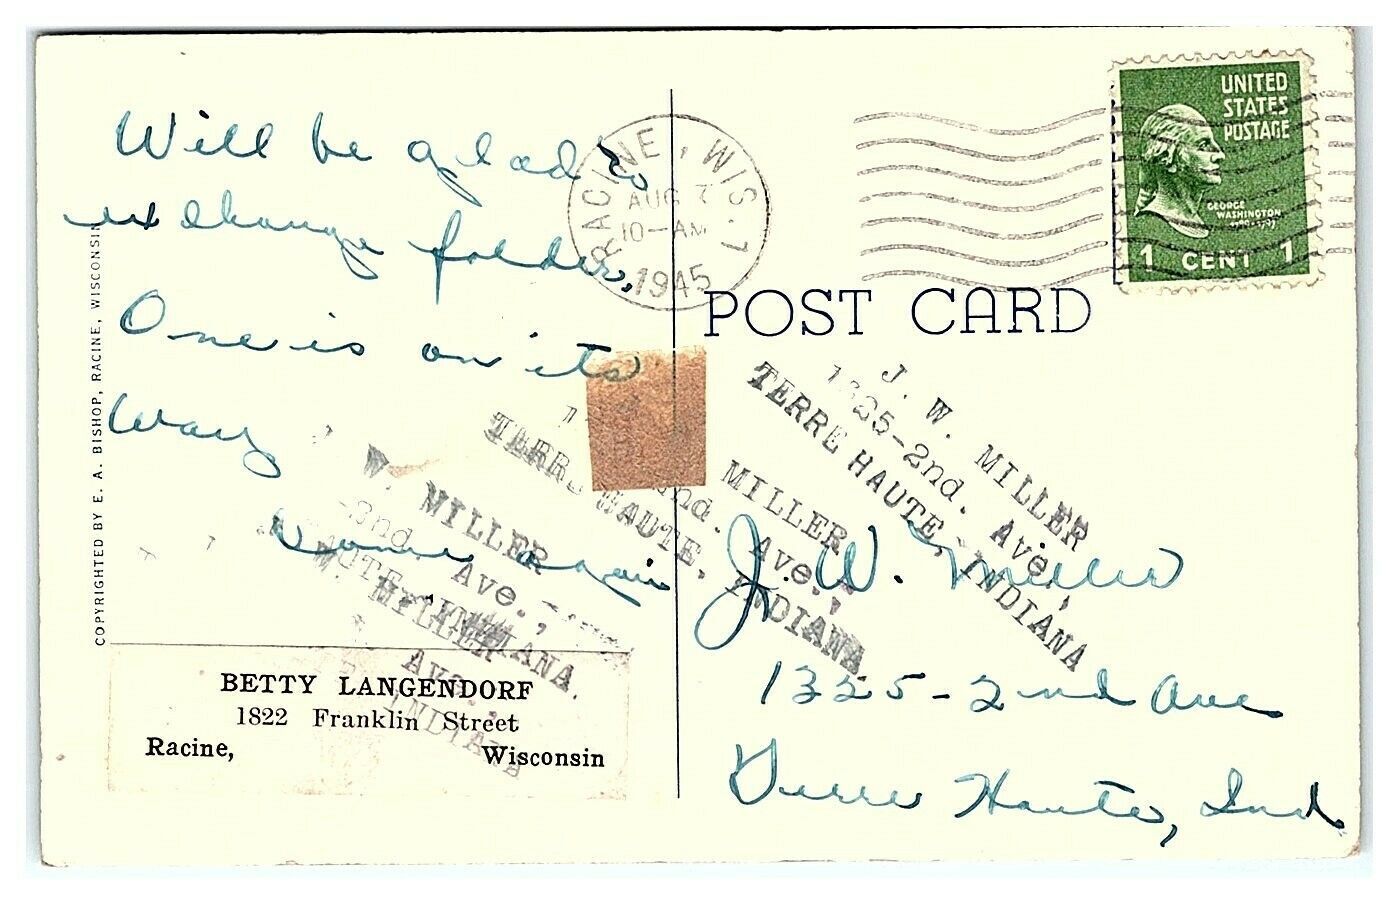 Will be glad to
exchange folder,
One is on its
Way
COPYRIGHTED BY E. A. BISHOP, RACINE, WISCONSIN
BETTY LANGENDORF
1822 Franklin Street
Racine, Wisconsin
RACINE, WIS. 1
AUG 7
10-AM
1945
UNITED
STATES
POSTAGE
GEORGE
WASHINGTON
1 CENT 1
POST CARD
J. W. MILLER
1325-2nd. Ave,
TERRE HAUTE, INDIANA
MILLER
nd. Ave.,
TERRE HAUTE, INDIANA
W. MILLER
2nd Ave.,
INDIANA.
W. MILLER
Ave.,
INDIANA
J. W. Miller
1325-2nd Ave
Terre Haute, Ind